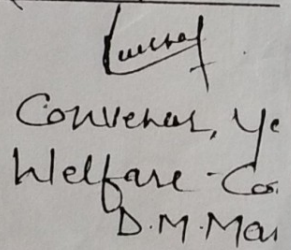 Convener, Ye
Welfare - Co.
D.M. Mar